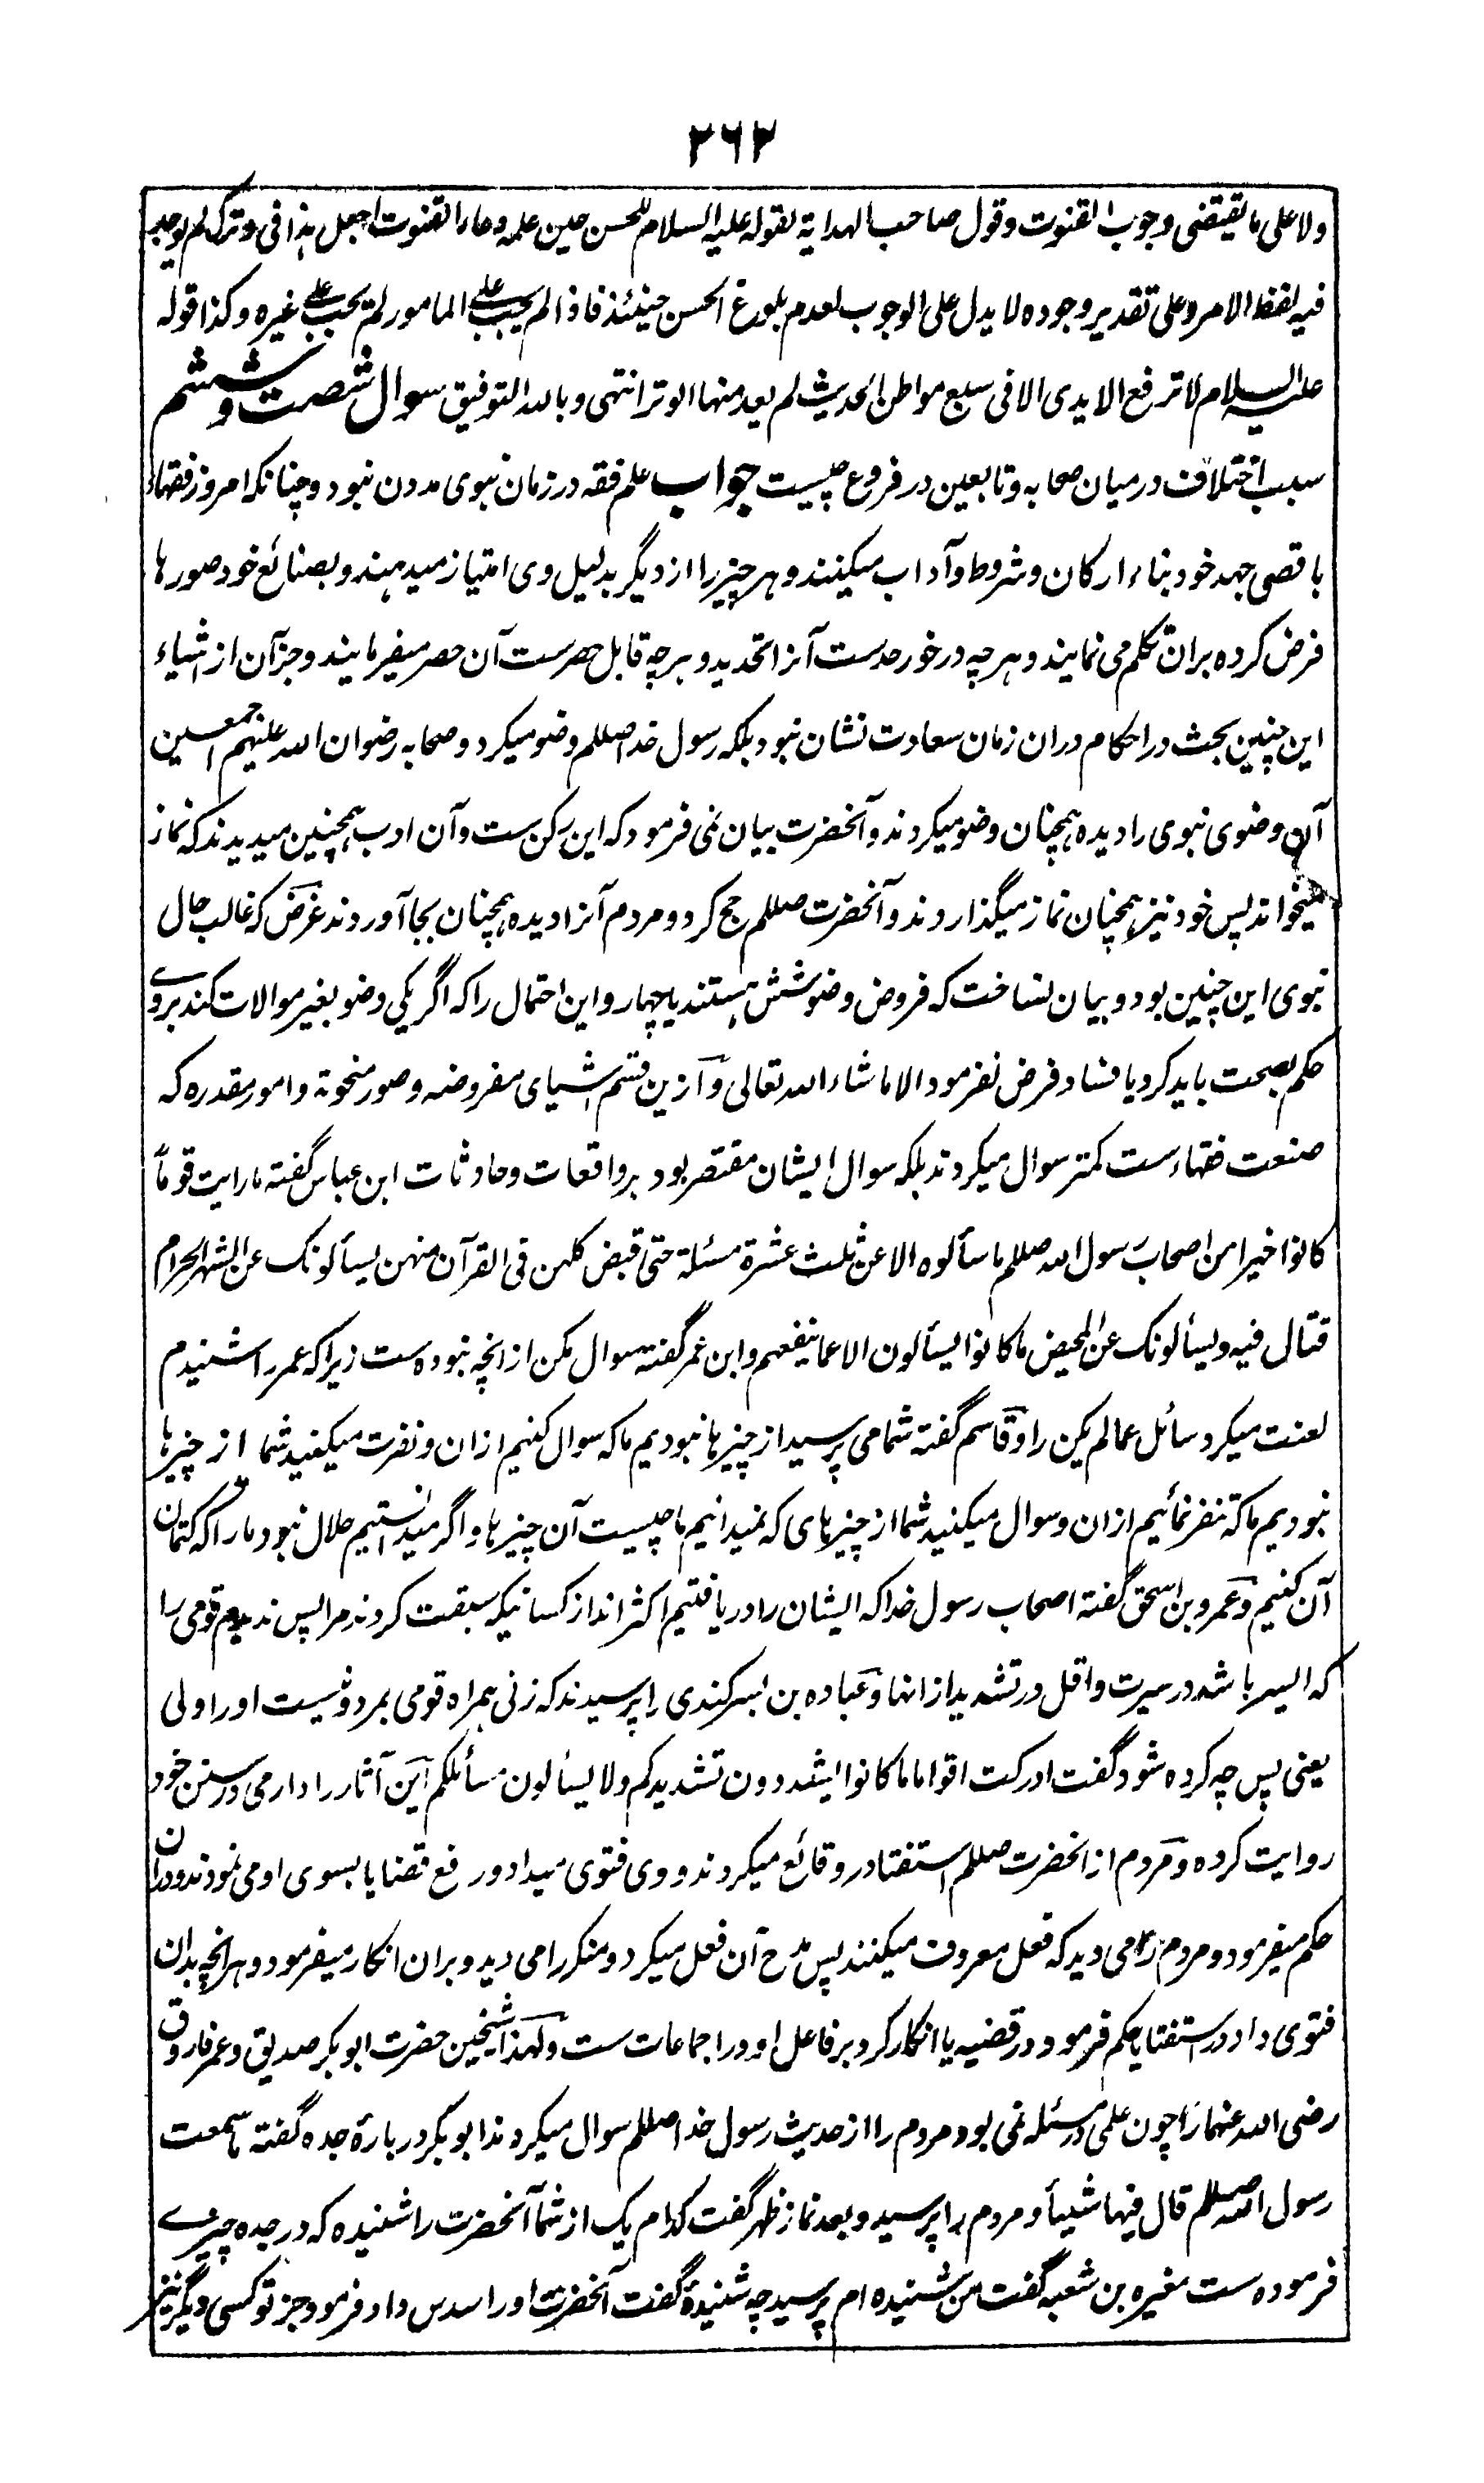 ۲۶۲
ولا علی ما یقتضی وجوب القنوت وقول صاحب الهدایة لقوله علیه السلام للحسن حین علمه دعاء القنوت اجعل هذا فی وترک لم یوجد
فیه لفظ الامر وعلی تقدیر وجوده لا یدل علی الوجوب لعدم بلوغ الحسن حینئذ فاذا لم یجب علی المامور لم یجب علی غیره وکذا قوله
علیه السلام لا ترفع الایدی الا فی سبع مواطن الحدیث لم یعد منها الوتر انتهی وبالله التوفیق سوال شصت وششم
سبب اختلاف درمیان صحابه وتابعین در فروع چیست جواب علم فقه در زمان نبوی مدون نبود وچنانکه امروز فقهاء
باقصی جهد خود بناء ارکان وشروط وآداب میکنند وهر چیز را از دیگر بدلیل وی امتیاز میدهند وبصنائع خود صورها
فرض کرده بران تکلم می نمایند وهرچه در خور حدست آنرا تحدید وهرچه قابل حصرست آن حصر میفرمایند وجز آن از اشیاء
این چنین بحث در احکام دران زمان سعادت نشان نبود بلکه رسول خدا صللم وضو میکرد وصحابه رضوان الله علیهم اجمعین
آن وضوی نبوی را دیده همچنان وضو میکردند وآنحضرت بیان نمی فرمود که این رکن ست وآن ادب همچنین میدیدند که نماز
میخواند پس خود نیز همچنان نماز میگذاردند وآنحضرت صللم حج کرد ومردم آنرا دیده همچنان بجا آوردند غرض که غالب حال
نبوی این چنین بود وبیان نساخت که فروض وضو شش هستند یا چهار واین احتمال را که اگر یکی وضو بغیر موالات کند بروے
حکم بصحت باید کرد یا فساد فرض نفرمود الا ما شاء الله تعالی وازین قسم اشیای مفروضه وصور منحوتة وامور مقدره که
صنعت فقهاءست کمتر سوال میکردند بلکه سوال ایشان مقتصر بود بر واقعات وحادثات ابن عباس گفته ما رایت قوماً
کانوا خیرا من اصحاب رسول الله صللم ما سألوه الا عن ثلث عشرة مسئلة حتی قبض کلهن فی القرآن منهن یسألونک عن الشهر الحرام
قتال فیه ویسألونک عن المحیض ما کانوا یسألون الا عما ینفعهم وابن عمر گفته سوال مکن از انچه نبوده ست زیراکه عمر را شنیدم
لعنت میکرد سائل عما لم یکن را وقاسم گفته شما می پرسید از چیزها نبودیم ما که سوال کنیم ازان ونفرت میکنید شما از چیزها
نبودیم ما که تنفر نمائیم ازان وسوال میکنید شما از چیزهای که نمیدانیم ما چیست آن چیزها واگر میدانستیم حلال نبود ما را که کتمان
آن کنیم وعمرو بن اسحق گفته اصحاب رسول خدا که ایشان را دریافتیم اکثر اند از کسانیکه سبقت کردند مرا پس ندیدم قومی را
که ایسر باشد در سیرت واقل در تشدید از انها وعباده بن بسر کندی را پرسیدند که زنی همراه قومی بمرد ونیست او را ولی
یعنی پس چه کرده شود گفت ادرکت اقواما ما کانوا یشددون تشدیدکم ولا یسألون مسألکم این آثار را دارمی در سنن خود
روایت کرده ومردم از انحضرت صللم استفتا در وقائع میکردند ووی فتوی میداد ورفع قضایا بسوی او می نمودند ودران
حکم میفرمود ومردم را می دید که فعل معروف میکنند پس مدح آن فعل میکرد ومنکر را می دید وبران انکار میفرمود وهر انچه بدان
فتوی داد در استفتا یا حکم فرمود در قضیه یا انکار کرد بر فاعل او در اجماعات ست ولهذا شیخین حضرت ابو بکر صدیق وعمر فاروق
رضی الله عنهما را چون علمی در مسئله نمی بود مردم را از حدیث رسول خدا صللم سوال میکردند ابو بکر در بارۀ جده گفته ما سمعت
رسول الله صللم قال فیها شیئأ ومردم را پرسید وبعد نماز ظهر گفت کدام یک از شما آنحضرت را شنیده که در جده چیزے
فرموده ست مغیره بن شعبه گفت من شنیده ام پرسید چه شنیدۀ گفت آنحضرت او را سدس داد فرمود جز تو کسی دیگر نیز